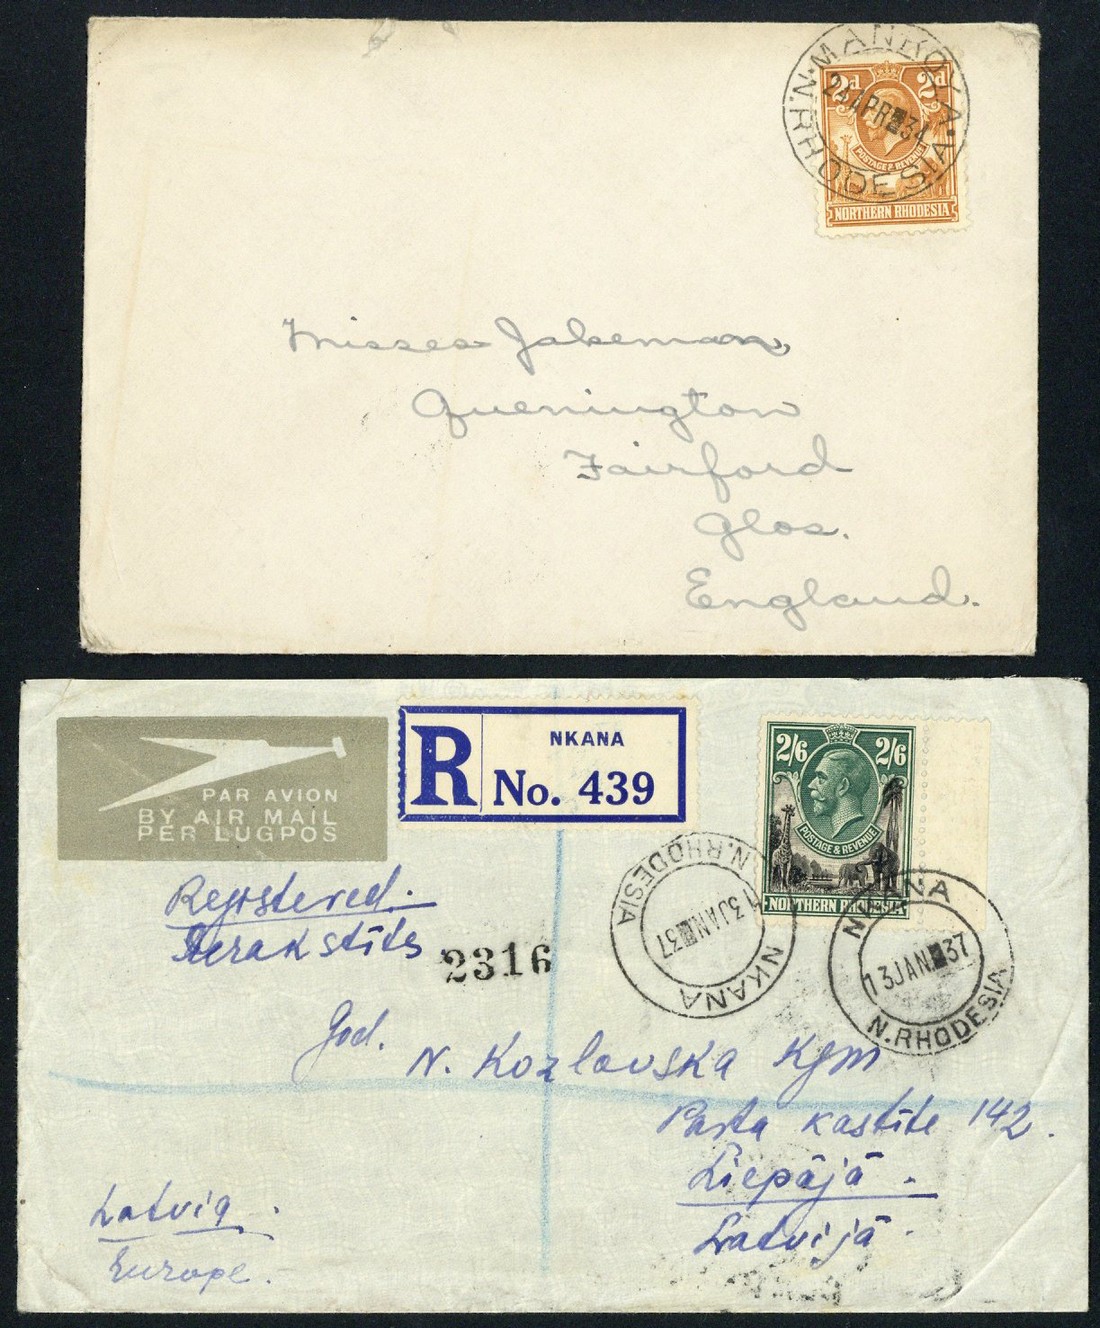 MANKOYA
24 APR 34
N. RHODESIA
2d 2d
POSTAGE & REVENUE
NORTHERN RHODESIA
Misses Jakeman,
Quenington
Fairford
Glos.
England.
PAR AVION
BY AIR MAIL
PER LUGPOS
R
NKANA
No. 439
2/6 2/6
POSTAGE & REVENUE
NORTHERN RHODESIA
N. RHODESIA
13 JAN 37
NKANA
NKANA
13 JAN 37
N. RHODESIA
Registered.
Ierakstīts
2316
God.
N. Kozlovska Kgm
Pasta kastīte 142.
Liepājā.
Latvijā.
Latvia.
Europe.